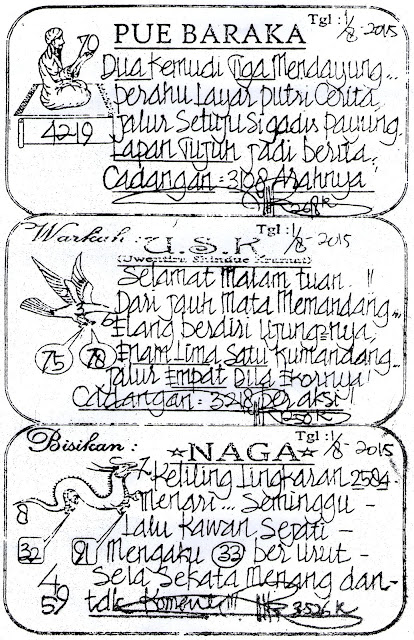 PUE BARAKA
Tgl : 1/8-2015
70
4219
Dua Kemudi Tiga Mendayung...
Perahu Layar Putri Cerita,
Jalur Setuju Si gadis payung.
Lapan Tujuh jadi berita.
Cadangan : 3108 Arahnya
Warkah :
U.S.K
Tgl : 1/8-2015
(Uwentira, Shindue Kramat)
Selamat Malam tuan. !!
Dari jauh Mata Memandang...
Elang berdiri Ujungnya,
75 78
Enam Lima Satu Kumandang...
Jalur Empat Dua Ekornya!
Cadangan : 3218 beraksi!
Bisikan :
NAGA
Tgl : 1/8-2015
Keliling Lingkaran 2584-
Menari... Seminggu -
8
Lalu Kawan Sepati -
32 91
Mengaku 33 ber urut -
49
Sela Sekata Menang dan-
59
tdk Koment !!!